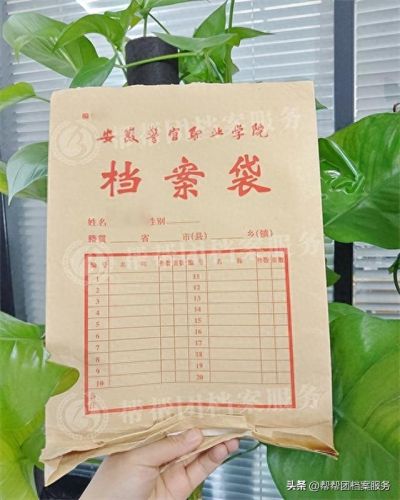 安徽警官职业学院
档案袋
姓名 性别
籍贯 省 市(县) 乡(镇)
编号 名称 件数 页数 编号 名称 件数 页数
1 11
2 12
3 13
4 14
5 15
6 16
7 17
8 18
9 19
10 20
备注
帮帮团档案服务
头条 @帮帮团档案服务